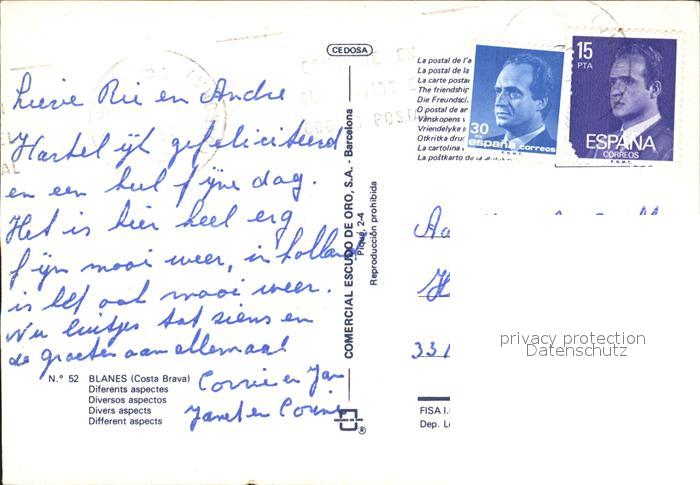 CEDOSA
Lieve Rie en Andre
Hartelijk gefeliciteerd
en een heel fijne dag.
Het is hier heel erg
fijn mooi weer, in holland
is het ook mooi weer.
Nu luitjes tot ziens en
de groeten aan allemaal
Corrie en Jan
Janet en
N.º 52 BLANES (Costa Brava)
Diferents aspectes
Diversos aspectos
Divers aspects
Different aspects
COMERCIAL ESCUDO DE ORO, S.A. - Barcelona
Piqué, 2-4
Reproducción prohibida
®
La postal de l'a
La postal de la
La carte postal
The friendship
Die Freundsc
O postal de an
Vänskopens v
Vriendelyke k
Otkritka druz
La cartolina
La poštkarto de la
30
españa correos
F.N.M.T.
15
PTA
ESPAÑA
CORREOS
F.N.M.T.
POSTAL
331
privacy protection
Datenschutz
FISA I.
Dep. L